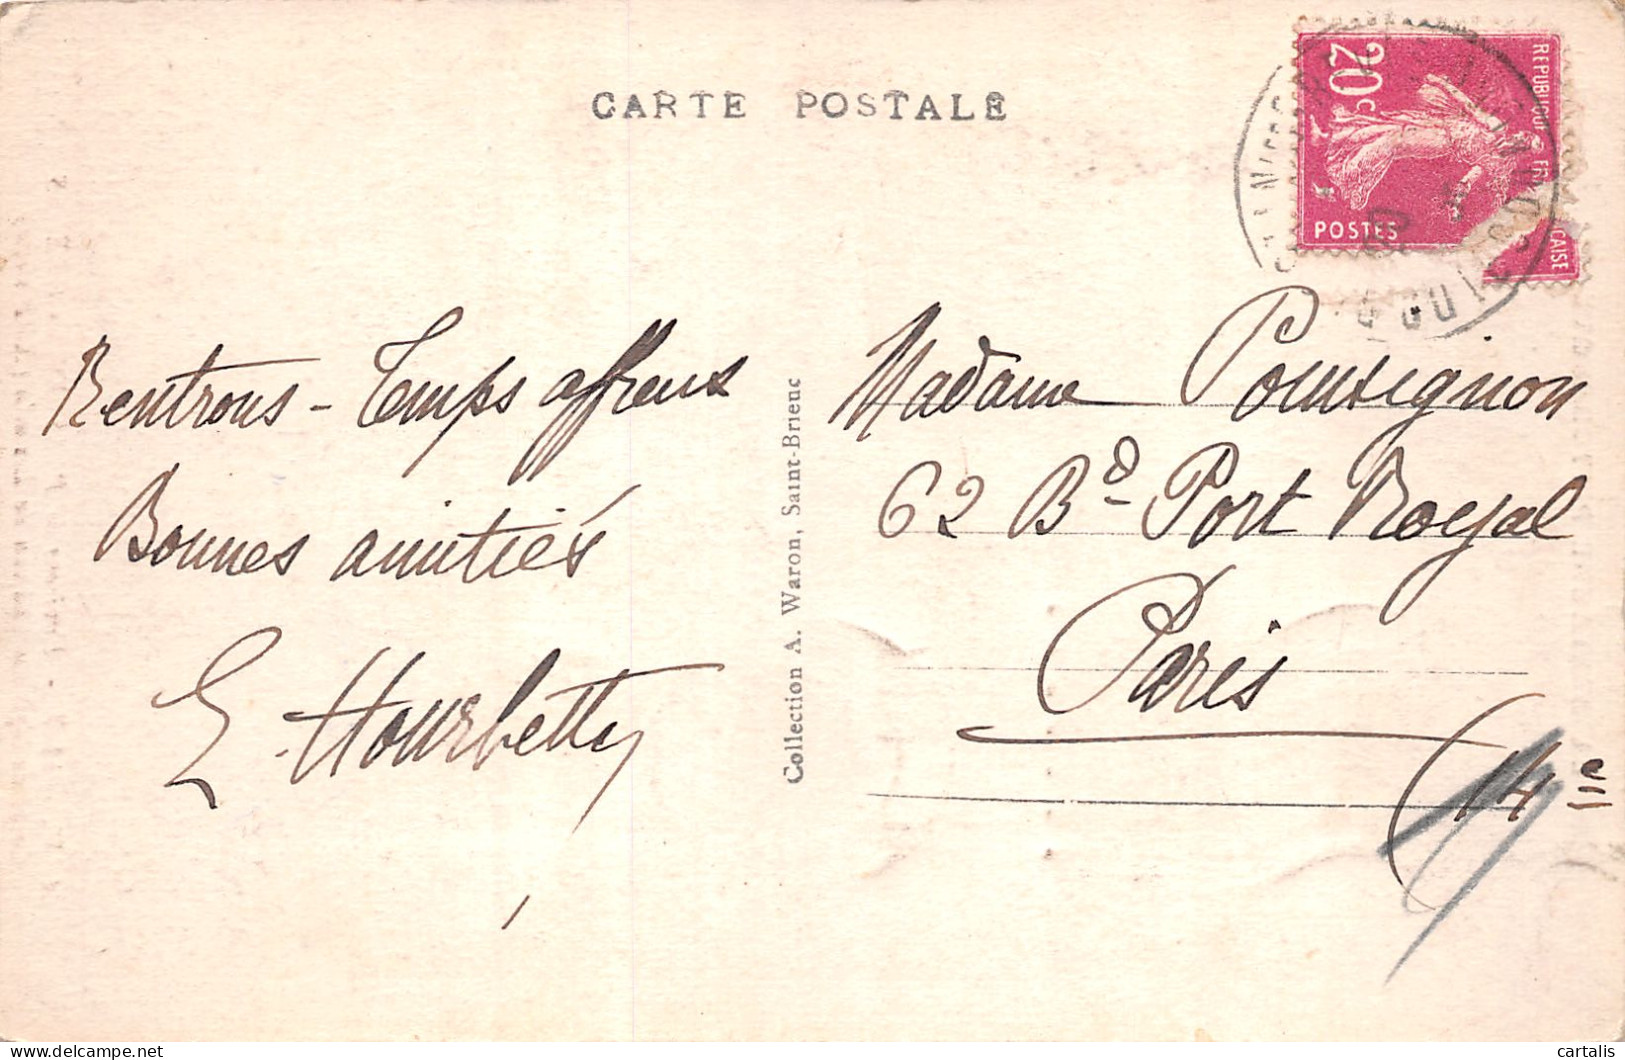 CARTE POSTALE
REPUBLIQUE FRANÇAISE
20c
POSTES
Rentrons - Temps affreux
Bonnes amitiés
Collection A. Waron, Saint-Brieuc
Madame Pointsignon
62 Bd Port Royal
Paris
(14
cartalis